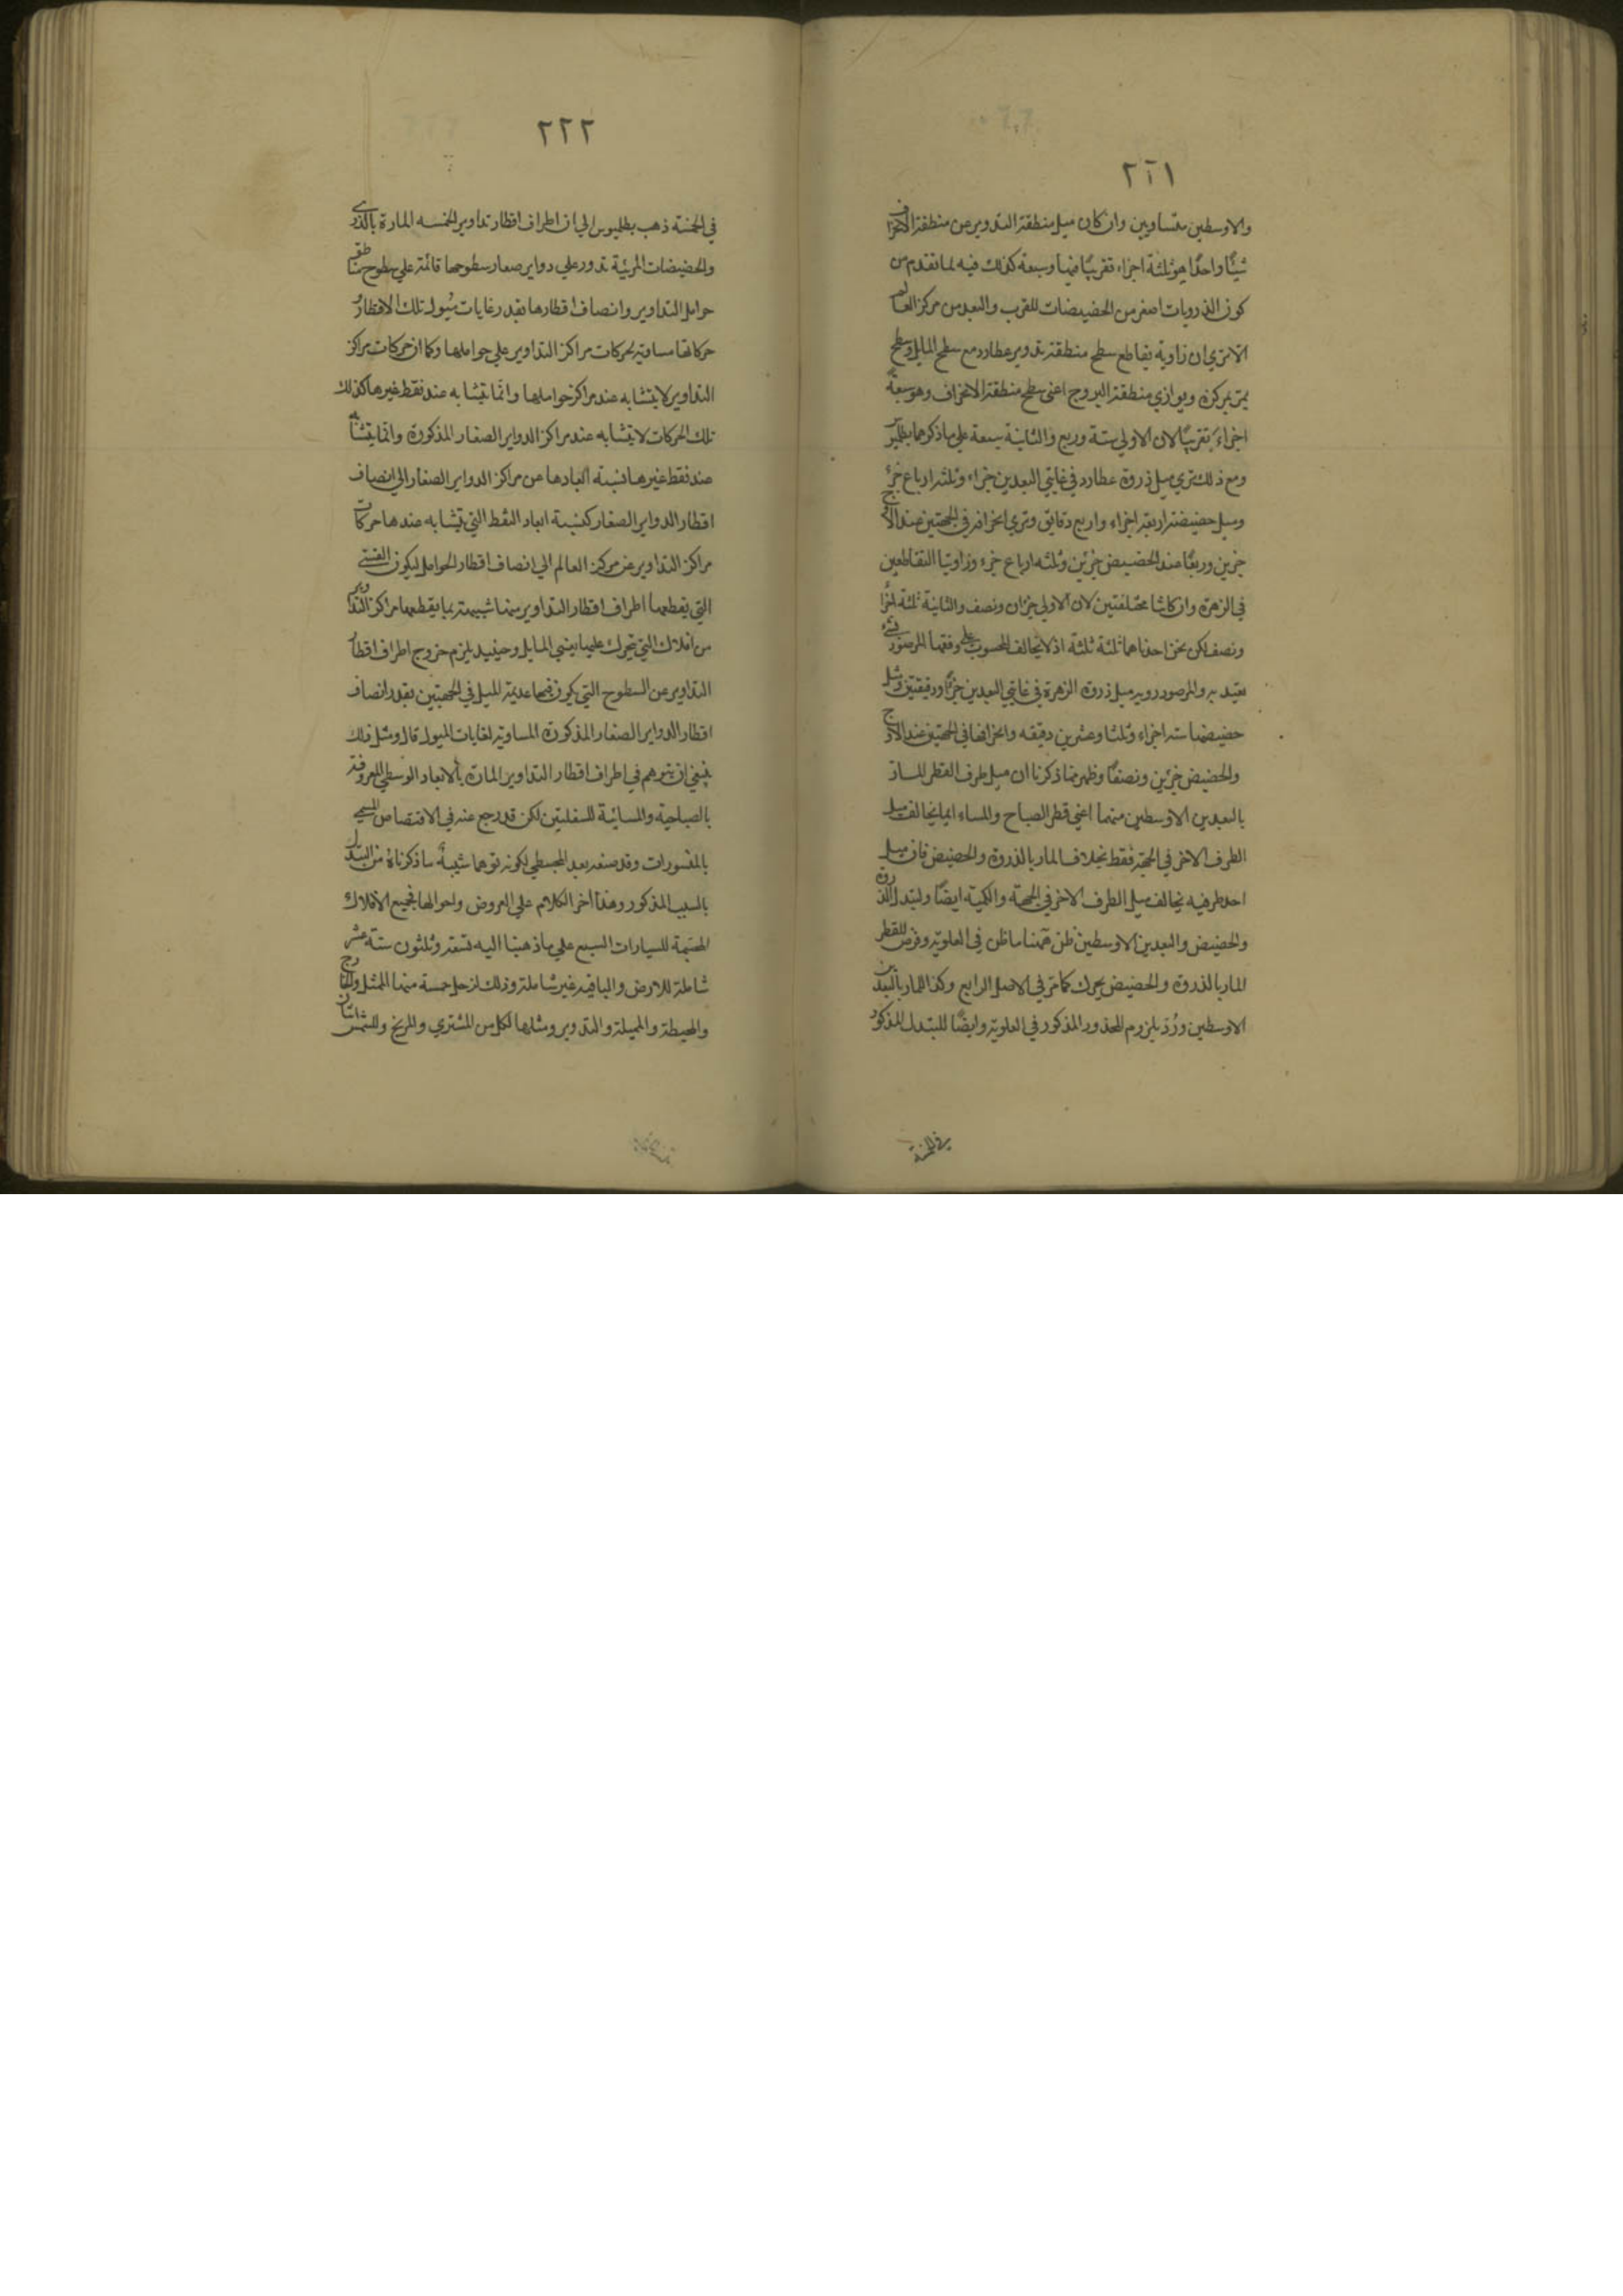 ٢٢١
والاوسطين متساويين وان كان ميل منطقة التدوير عن منطقة الانحراف
شيئًا واحدًا هو ثلثة اجزاء تقريبًا فيها وسبعة كذلك فيه لما تقدم من
كون الذرويات اصغر من الحضيضات للقرب والبعد من مركز العالم
الا ترى ان زاوية تقاطع سطح منطقة تدوير عطارد مع سطح المايل وسطح
يمر بمركزه ويوازي منطقة البروج اعني سطح منطقة الانحراف وهو سبعة
اجزاء تقريبًا لان الاولي ستة وربع والثانية سبعة علي ما ذكرها بطلميوس
ومع ذلك نري ميل ذروة عطارد في غايتي البعدين جزاء وثلثه ارباع جزء
وميل حضيضه اربعة اجزاء واربع دقايق ونري انحرافه في الجهتين عند الاوج
جزين وربعًا عند الحضيض جزئين وثلثه ارباع جزء وزاويتا التقاطعين
في الزهرة وان كانتا مختلفتين لان الاولي جزان ونصف والثانية ثلثة اجزا
ونصف لكن نحن اخذناهما ثلثة ثلثة اذ لا يخالف المحسوب علي وفقها المرصود بشيء
يعتد به والمرصود رويه ميل ذروة الزهرة في غايتي البعدين جزءًا ودقيقتين وميل
حضيضها سته اجزاء وثلثا وعشرين دقيقه وانحرافها في الجهتين عند الاوج
والحضيض جزئين ونصفًا وظهر مما ذكرنا ان ميل طرف القطر المار
بالبعدين الاوسطين منهما اعني قطر الصباح والمساء انما يخالف ميل
الطرف الاخر في الجهة فقط بخلاف المار بالذروة والحضيض فان ميل
احد طرفيه يخالف ميل الطرف الاخر في الجهة والكمية ايضًا ولتبدل الذروة
والحضيض والبعدين الاوسطين ظن ههنا ما ظن في العلوية وفرض للقطر
المار بالذروة والحضيض محرك كما مر في الاصل الرابع وكذا المار بالبعدين
الاوسطين ورد بلزوم المحذور المذكور في العلوية وايضًا للتبدل المذكور
في الخمسة
٢٢٢
في الخمسة ذهب بطلميوس الي ان اطراف اقطار تداوير الخمسه المارة بالذري
والحضيضات المرئية تدور علي دواير صغار سطوحها قائمة علي سطوح مناطق
حوامل التداوير وانصاف اقطارها بقدر غايات ميول تلك الاقطار
حركاتها مساوية لحركات مراكز التداوير علي حواملها وكما ان حركات مراكز
التداوير لا يتشابه عند مراكز حواملها وانما يتشابه عند نقط غيرها كذلك
تلك الحركات لا يتشابه عند مراكز الدواير الصغار المذكورة وانما يتشابه
عند نقط غيرها نسبة ابعادها عن مراكز الدواير الصغار الي انصاف
اقطار الدواير الصغار كنسبة ابعاد النقط التي يتشابه عندها حركات
مراكز التداوير عن مركز العالم الي انصاف اقطار الحوامل ليكون القسي
التي يقطعها اطراف اقطار التداوير منها شبيهة بما يقطعها مراكز التداوير
من افلاك التي يتحرك عليها اعني المايل وحينيد يلزم خروج اطراف اقطار
التداوير عن السطوح التي يكون فيها عديمة الميل في الجهتين بقدر انصاف
اقطار الدواير الصغار المذكورة المساوية لغايات الميول قال ومثل ذلك
ينبغي ان يتوهم في اطراف اقطار التداوير المارة بالابعاد الوسطي المعروفة
بالصباحية والمسائية للسفليتين لكن قد رجع عنه في الاقتصاص المسمي
بالمنشورات وقد صنفه بعد المجسطي لكونه توهما شبيهة ما ذكرناه من التبدل
بالسبب المذكور وهذا آخر الكلام علي العروض واحوالها فجميع الافلاك
المجسمة للسيارات السبع علي ما ذهبنا اليه تسعة وثلثون ستة عشر
شاملة للارض والباقيه غير شاملة وذلك لزحل خمسة منها الممثل والخارج
والمحيطة والمميلة والتدوير ومثلها لكل من المشتري والمريخ وللشمس اثنان